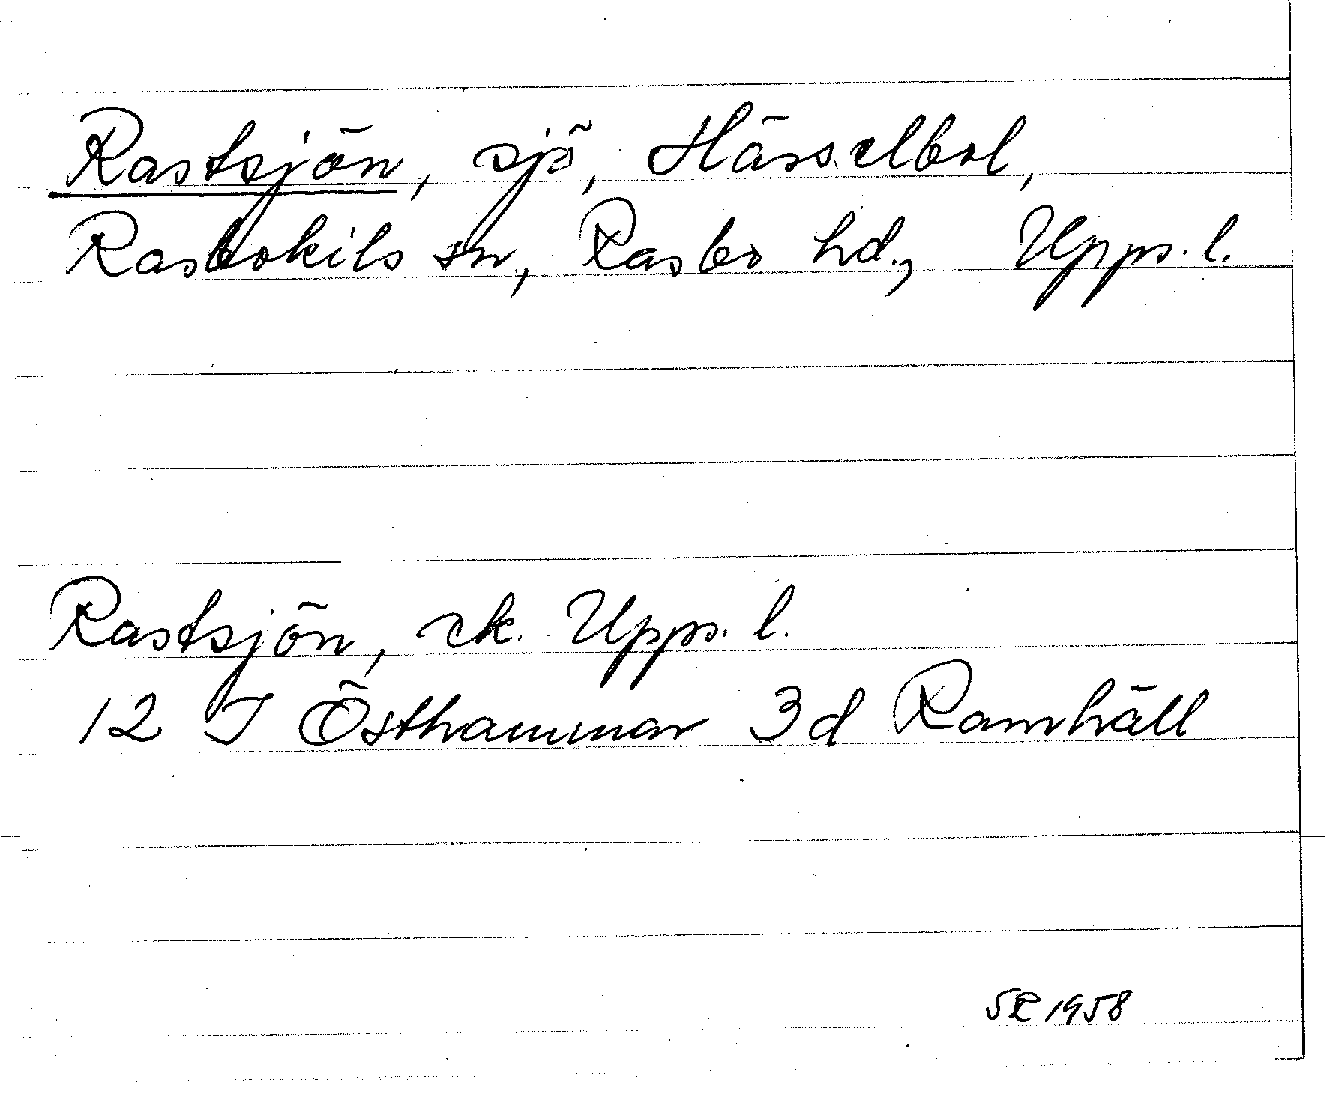 Rastsjön, sjö, Hässelbol,
Rasbokils sn, Rasbo hd., Upps. l.
Rastsjön, ek. Upps. l.
12 I Östhammar 3d Ramhäll
SR 1958